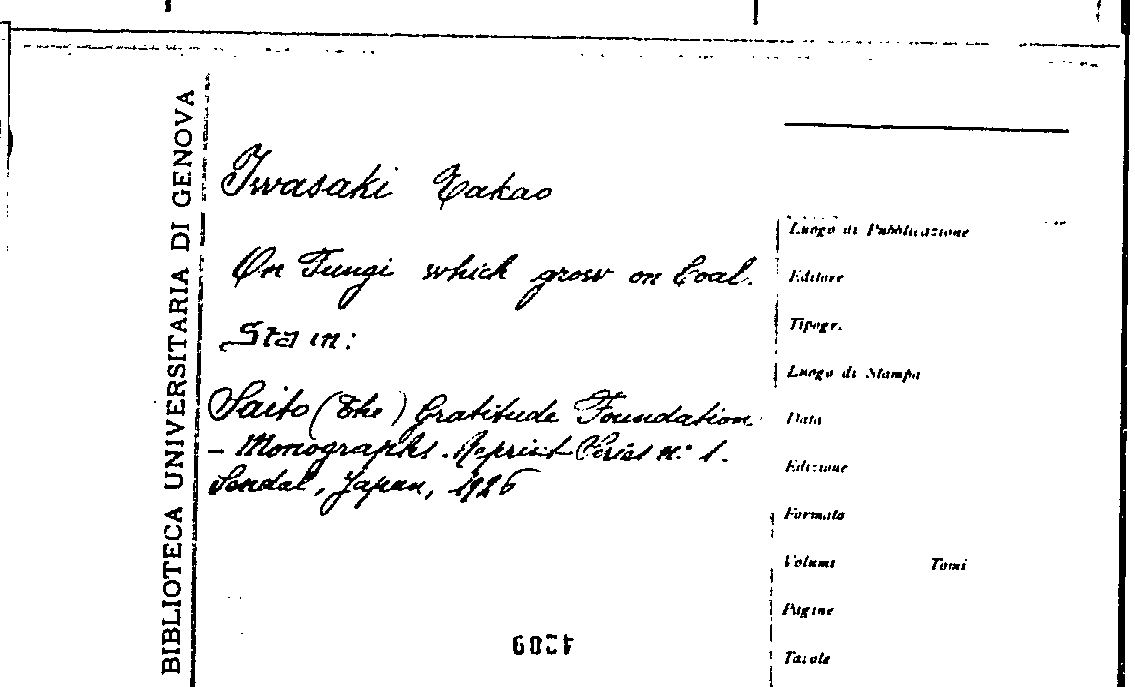 BIBLIOTECA UNIVERSITARIA DI GENOVA
Iwasaki Takao
On Fungi which grow on Coal.
Sta in:
Saito (The) Gratitude Foundation
- Monographs. Reprint Series n: 1.
Sendal, Japan, 1926
Luogo di Pubblicazione
Editore
Tipogr.
Luogo di Stampa
Data
Edizione
Formato
Volumi Tomi
Pagine
Tavole